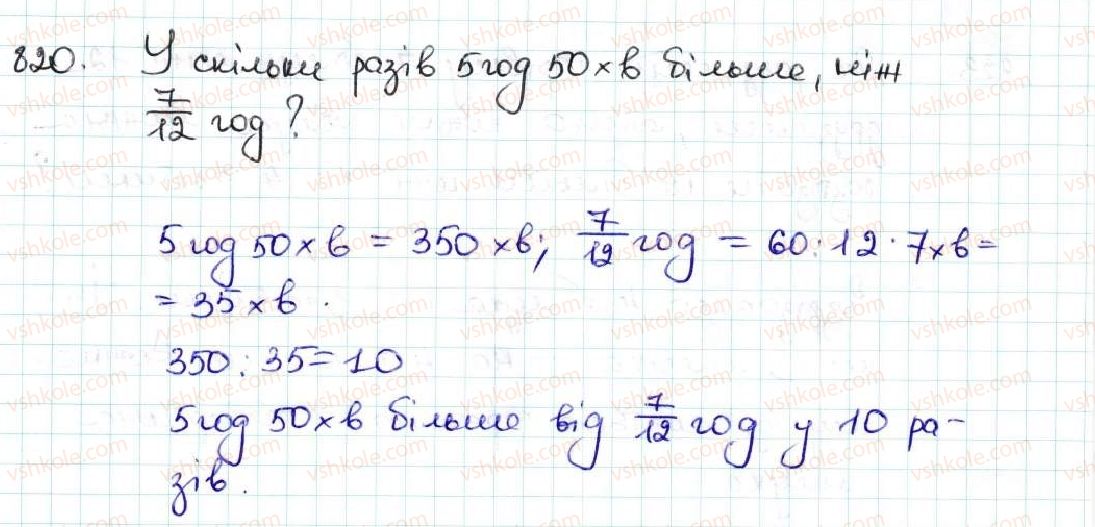 820. У скільки разів 5 год 50 хв більше, ніж
7/12 год?
5 год 50 хв = 350 хв; 7/12 год = 60 : 12 · 7 хв =
= 35 хв.
350 : 35 = 10
5 год 50 хв більше від 7/12 год у 10 ра-
зів.